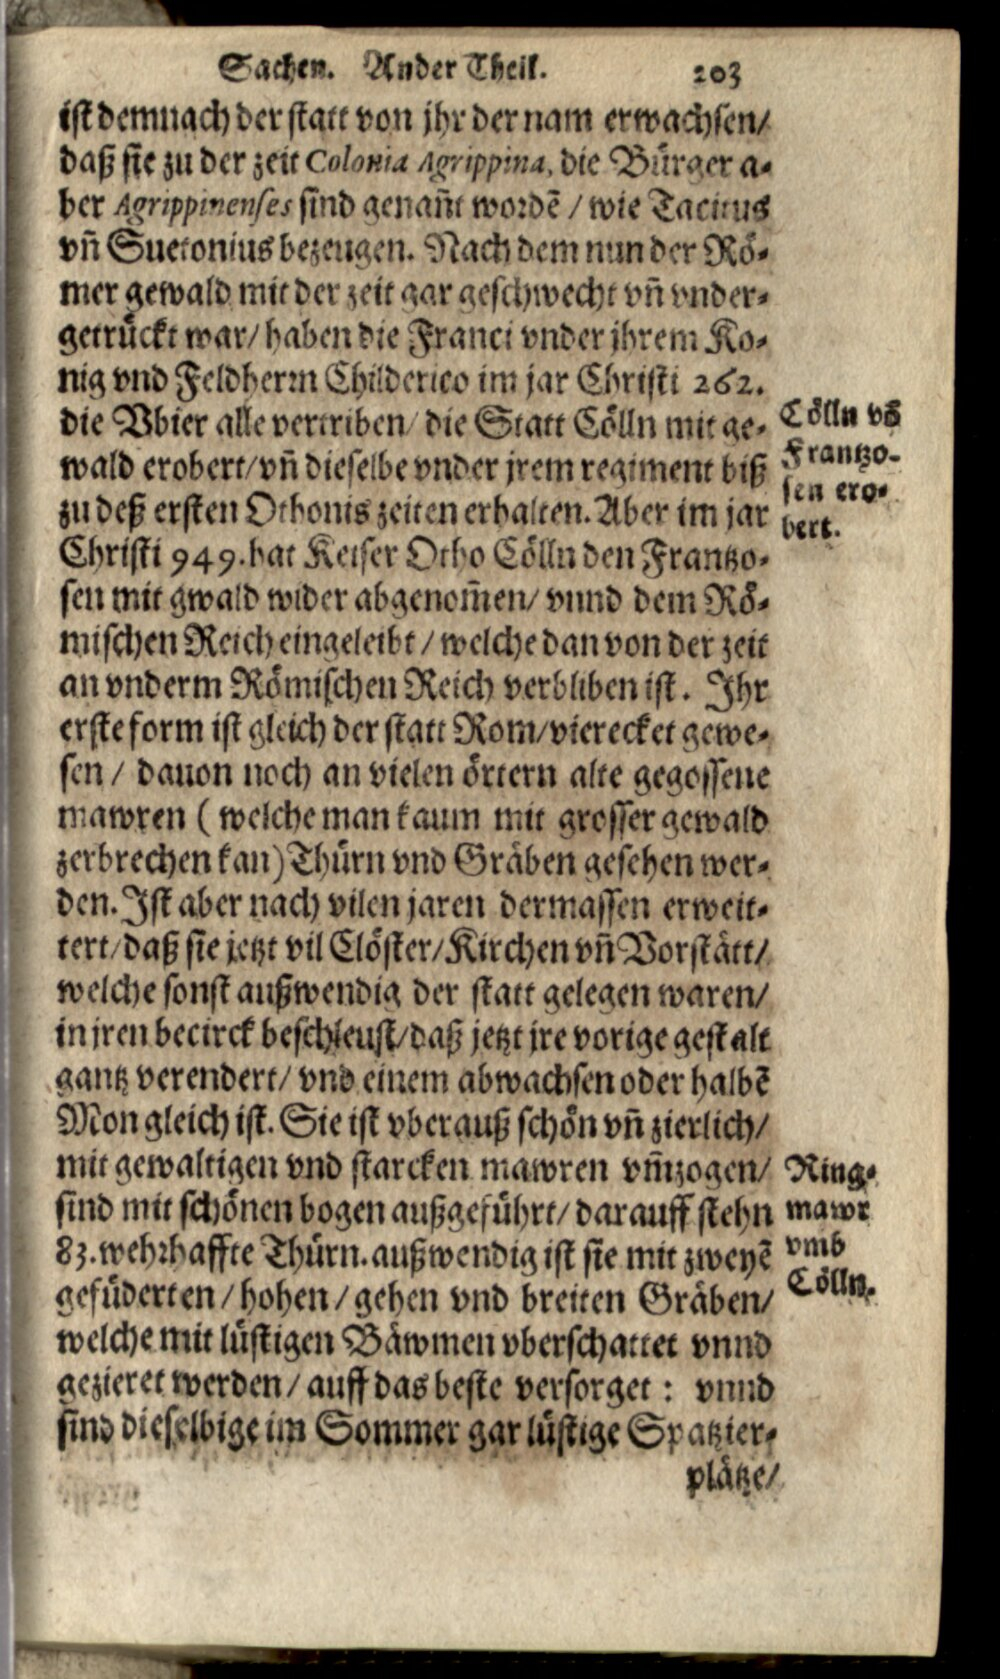 Sachen. Ander Theil. 203
ist demnach der statt von jhr der nam erwachsen/
daß sie zu der zeit Colonia Agrippina, die Bürger a-
ber Agrippinenses sind genañt wordẽ / wie Tacitus
vñ Suetonius bezeugen. Nach dem nun der Rö-
mer gewald mit der zeit gar geschwecht vñ vnder-
getrückt war/ haben die Franci vnder jhrem Ko-
nig vnd Feldherrn Childerico im jar Christi 262.
die Vbier alle vertriben/ die Statt Cölln mit ge-
wald erobert/ vñ dieselbe vnder jrem regiment biß
zu deß ersten Othonis zeiten erhalten. Aber im jar
Christi 949. hat Keiser Otho Cölln den Frantzo-
sen mit gwald wider abgenom̃en/ vnnd dem Rö-
mischen Reich eingeleibt / welche dan von der zeit
an vnderm Römischen Reich verbliben ist. Ihr
erste form ist gleich der statt Rom/ vierecket gewe-
sen / dauon noch an vielen örtern alte gegossene
mawren ( welche man kaum mit grosser gewald
zerbrechen kan) Thürn vnd Gräben gesehen wer-
den. Ist aber nach vilen jaren dermassen erweit-
tert/ daß sie jetzt vil Clöster/ Kirchen vñ Vorstätt/
welche sonst außwendig der statt gelegen waren/
in jren becirck beschleust/ daß jetzt jre vorige gestalt
gantz verendert/ vnd einem abwachsen oder halbẽ
Mon gleich ist. Sie ist vberauß schön vñ zierlich/
mit gewaltigen vnd starcken mawren vm̃zogen/
sind mit schönen bogen außgeführt/ darauff stehn
83. wehrhaffte Thürn. außwendig ist sie mit zweyẽ
gefüderten / hohen / gehen vnd breiten Gräben/
welche mit lüstigen Bäwmen vberschattet vnnd
gezieret werden / auff das beste versorget : vnnd
sind dieselbige im Sommer gar lüstige Spatzier-
plätze/
Cölln võ
Frantzo-
sen ero-
bert.
Ring-
mawr
vmb
Cölln.